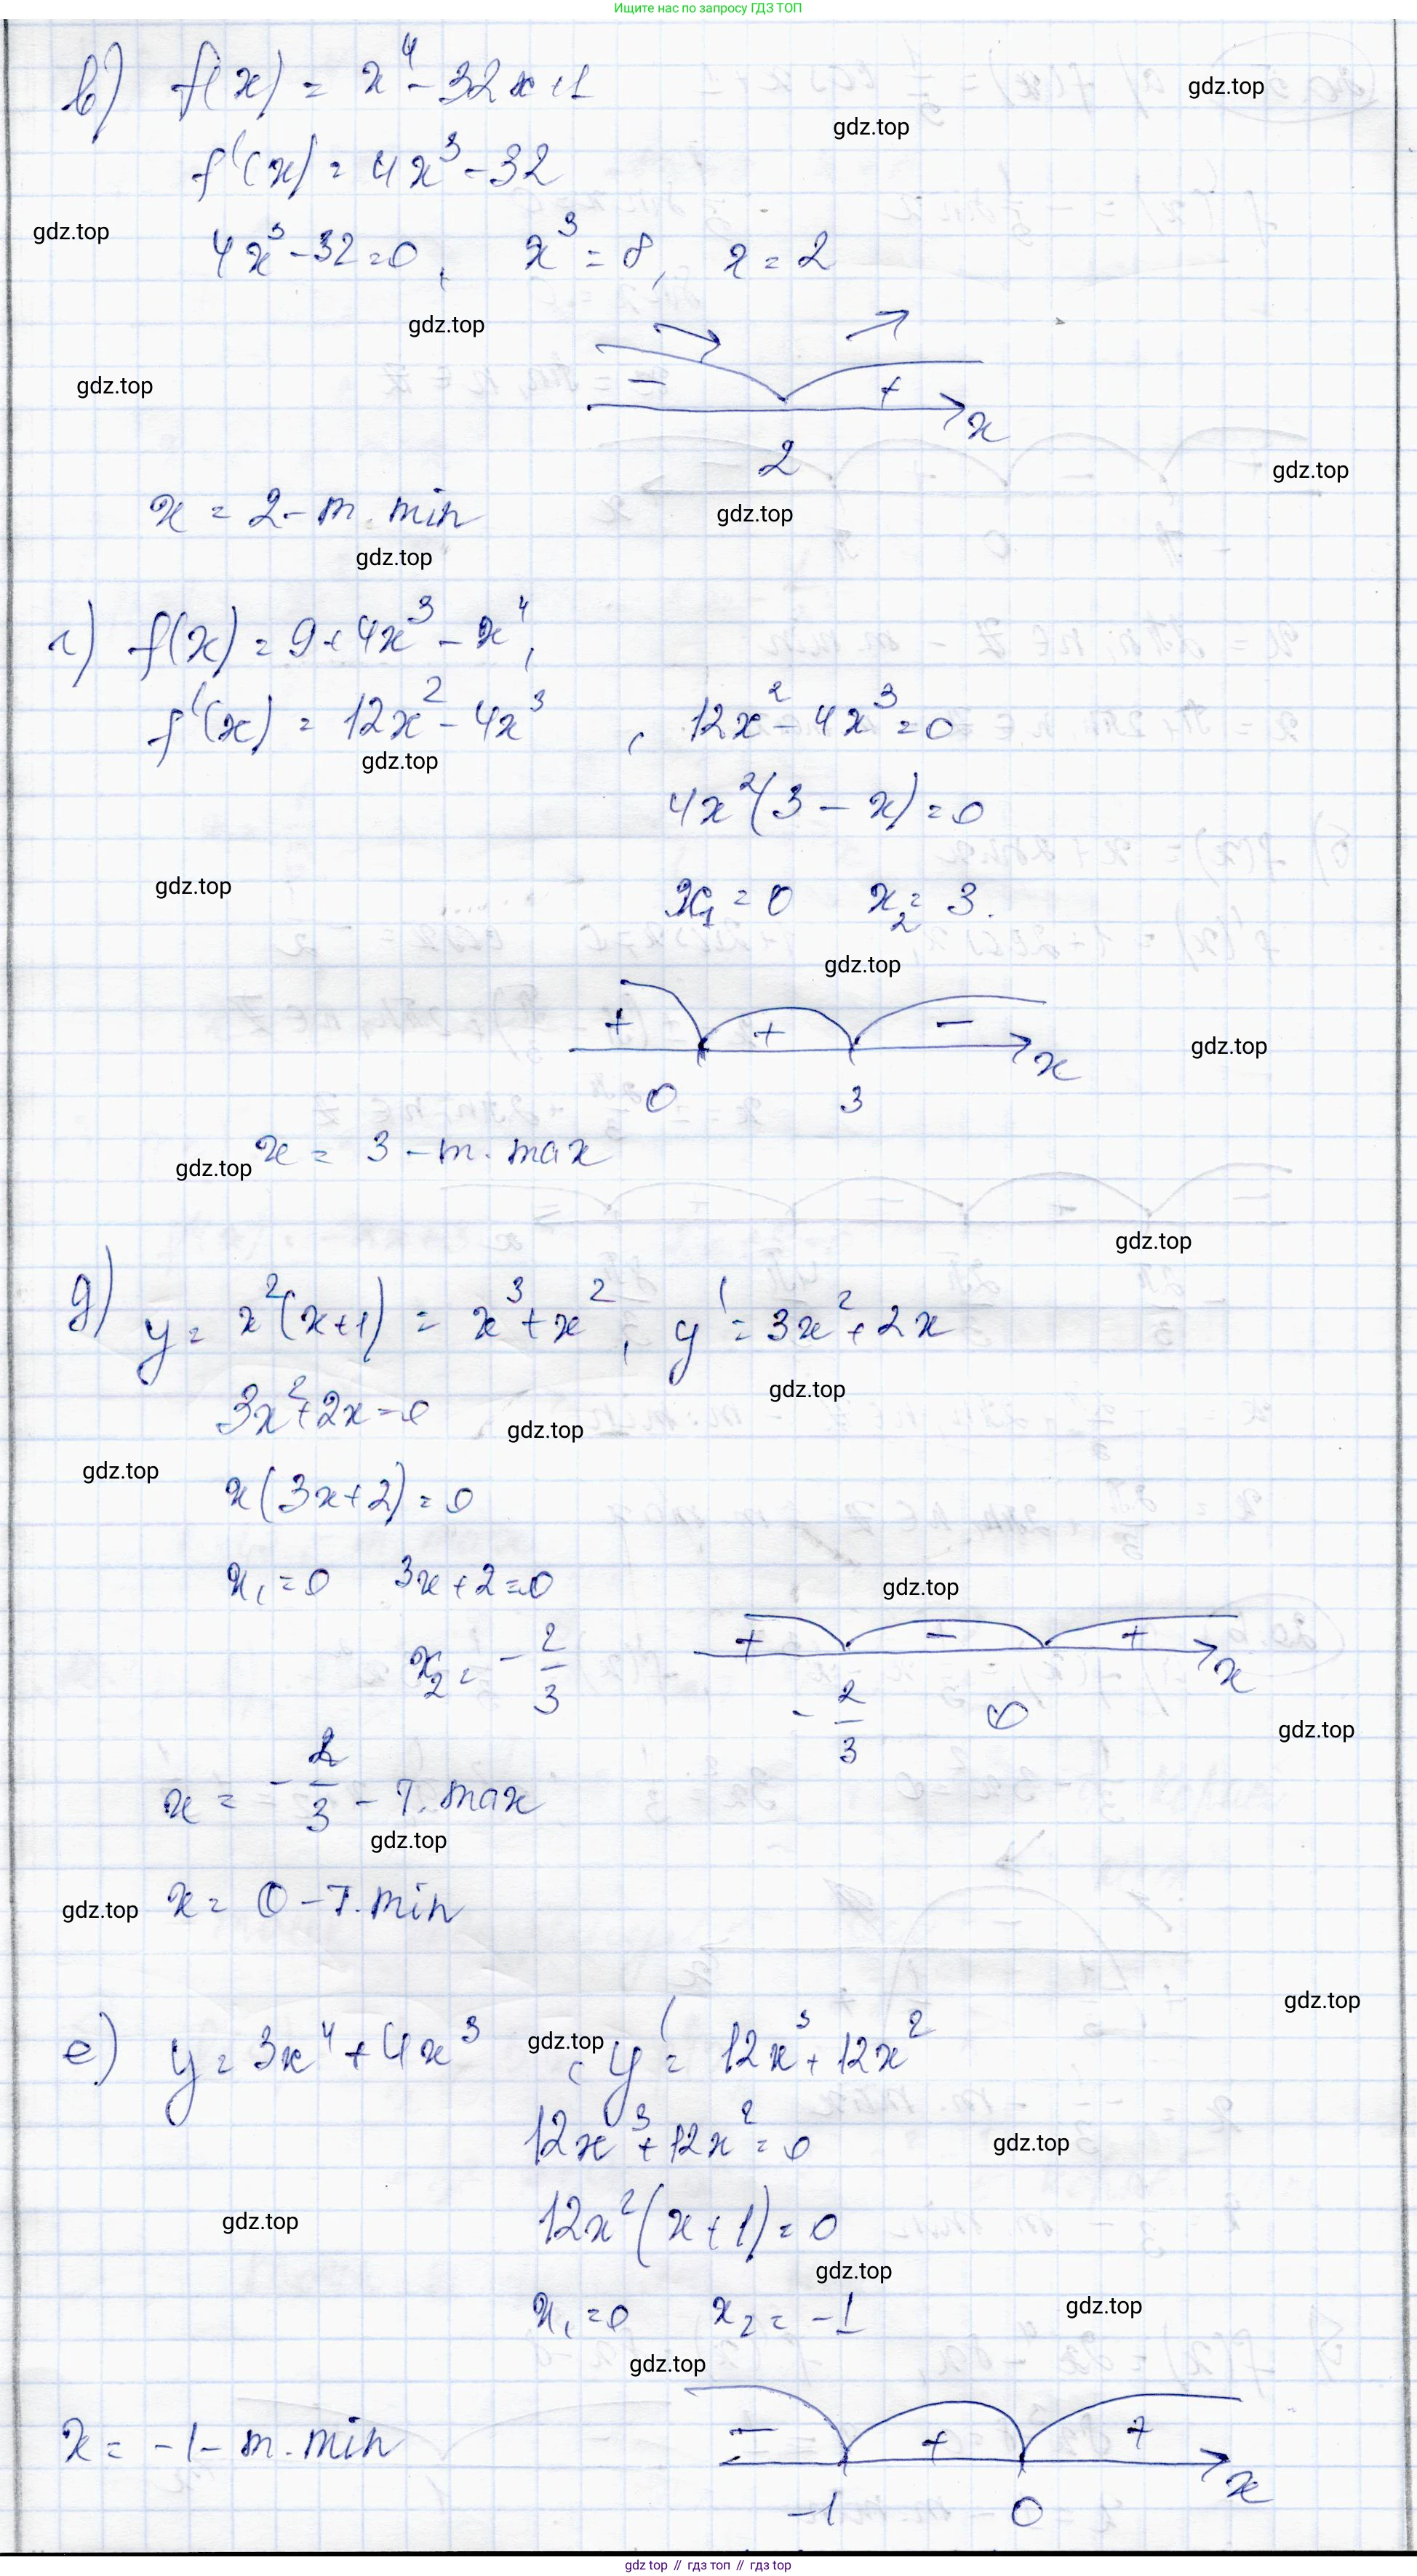 Ищите нас по запросу ГДЗ ТОП
в) f(x) = x⁴ - 32x + 1
gdz.top
gdz.top
f'(x) = 4x³ - 32
gdz.top
4x³ - 32 = 0, x³ = 8, x = 2
gdz.top
gdz.top
- +
x
2
gdz.top
x = 2 - т. min
gdz.top
gdz.top
г) f(x) = 9 + 4x³ - x⁴,
f'(x) = 12x² - 4x³, 12x² - 4x³ = 0
gdz.top
4x²(3 - x) = 0
gdz.top
x₁ = 0 x₂ = 3.
gdz.top
+ + -
x
gdz.top
0 3
x = 3 - т. max
gdz.top
gdz.top
д) y = x²(x+1) = x³ + x², y' = 3x² + 2x
gdz.top
3x² + 2x = 0
gdz.top
gdz.top
x(3x+2) = 0
x₁ = 0 3x + 2 = 0
gdz.top
+ - +
x
x₂ = - 2/3
- 2/3 0
gdz.top
x = - 2/3 - т. max
gdz.top
x = 0 - т. min
gdz.top
gdz.top
е) y = 3x⁴ + 4x³, y' = 12x³ + 12x²
gdz.top
12x³ + 12x² = 0
gdz.top
gdz.top
12x²(x + 1) = 0
gdz.top
x₁ = 0 x₂ = -1
gdz.top
gdz.top
- + +
x
x = -1 - т. min
-1 0
gdz top // гдз топ // gdz top